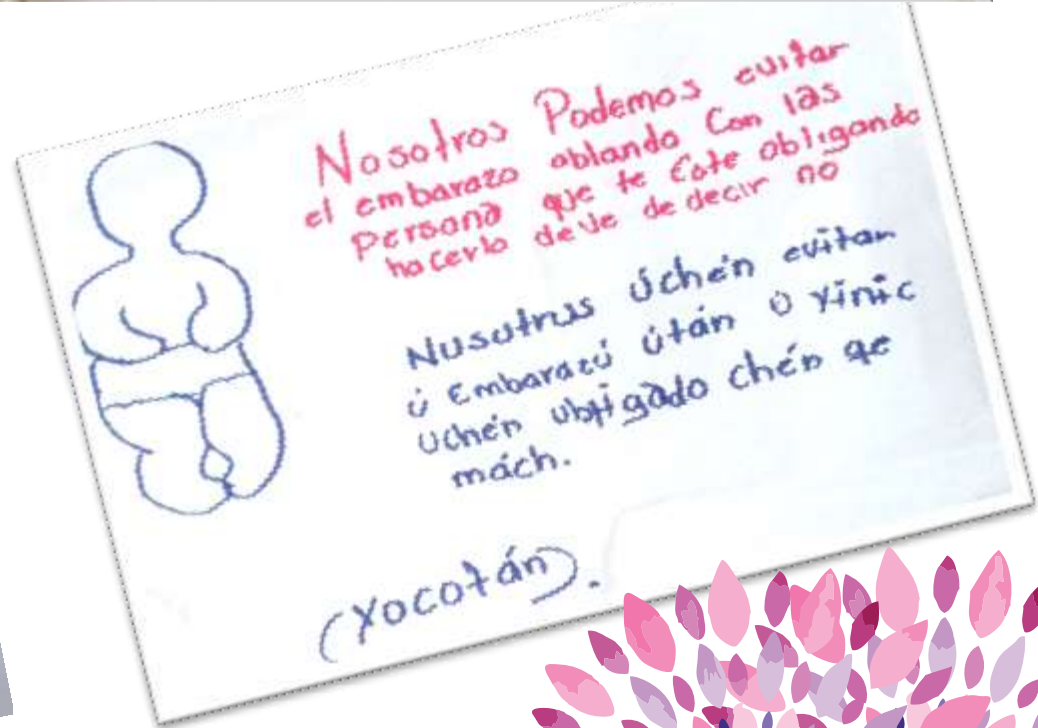 Nosotros Podemos evitar
el embarazo ablando Con las
persona que te Este obligando
hacerlo deve de decir no
Nusutrus úchén evitan
ú Embarazú útán ú Yinic
uchén ubligado chén qe
mách.
(Yocotán).